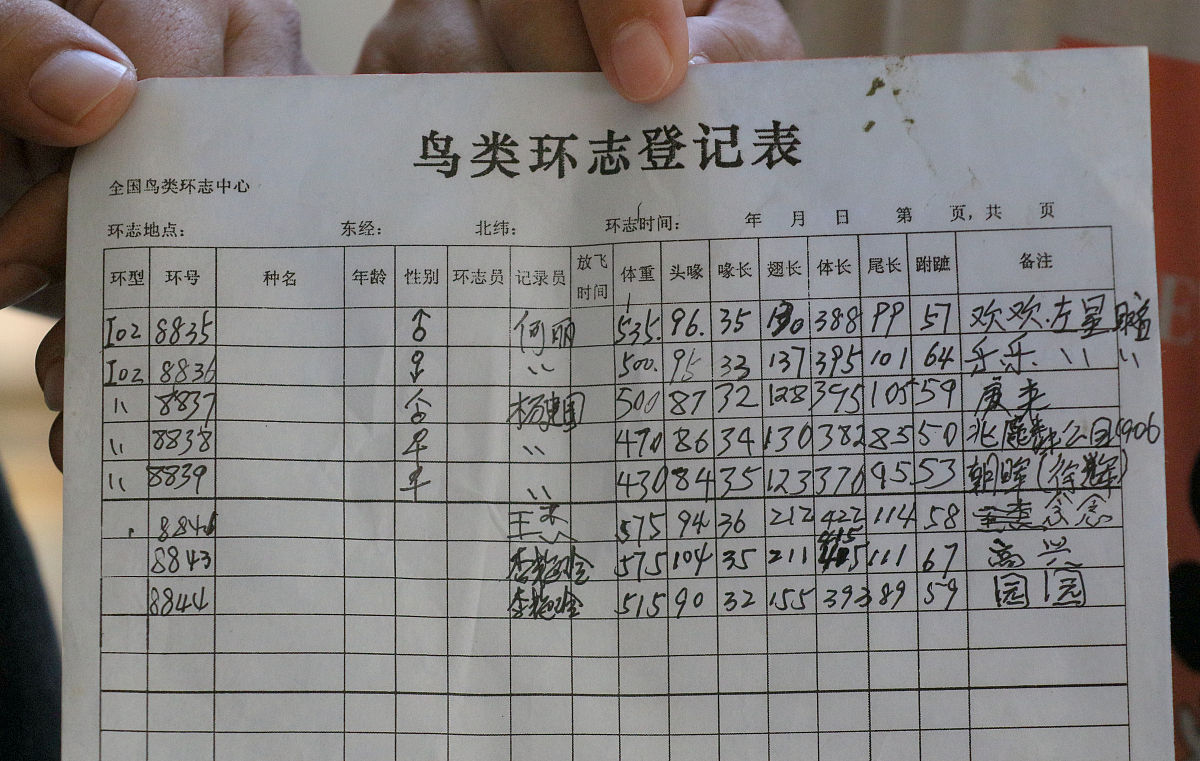 鸟类环志登记表
全国鸟类环志中心
环志地点： 东经： 北纬： 环志时间： 年 月 日 第 页，共 页
环型 环号 种名 年龄 性别 环志员 记录员 放飞时间 体重 头喙 喙长 翅长 体长 尾长 跗蹠 备注
I02 8835 ♂ 何丽 535. 96. 35 388 99 57 欢欢.左星
I02 8836 〃 500. 95 33 137 395 101 64 乐乐 〃 〃
〃 8837 杨建国 500 87 32 128 395 105 59
〃 8838 〃 470 86 34 130 382 85 50 公园 906
〃 8839 〃 430 84 35 123 370 95 53 朝晖(徐辉)
575 94 36 212 422 114 58 念念
8843 575 104 35 211 415 111 67 高兴
8844 515 90 32 155 393 89 59 园园